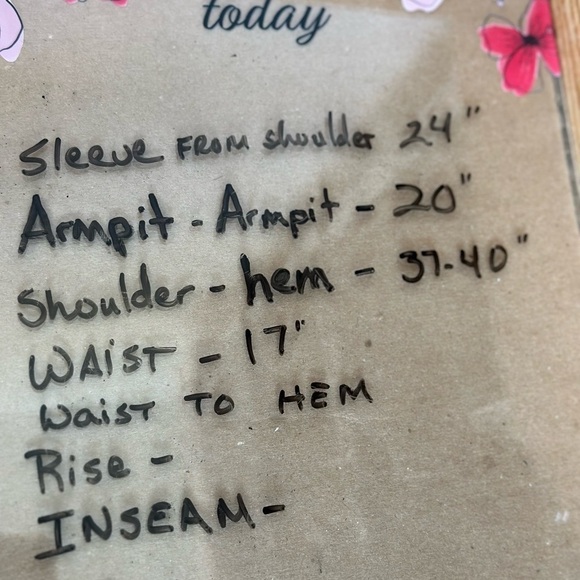 today
Sleeve FROM shoulder 24"
Armpit - Armpit - 20"
Shoulder - hem - 37-40"
WAIST - 17"
Waist TO HEM
Rise -
INSEAM-